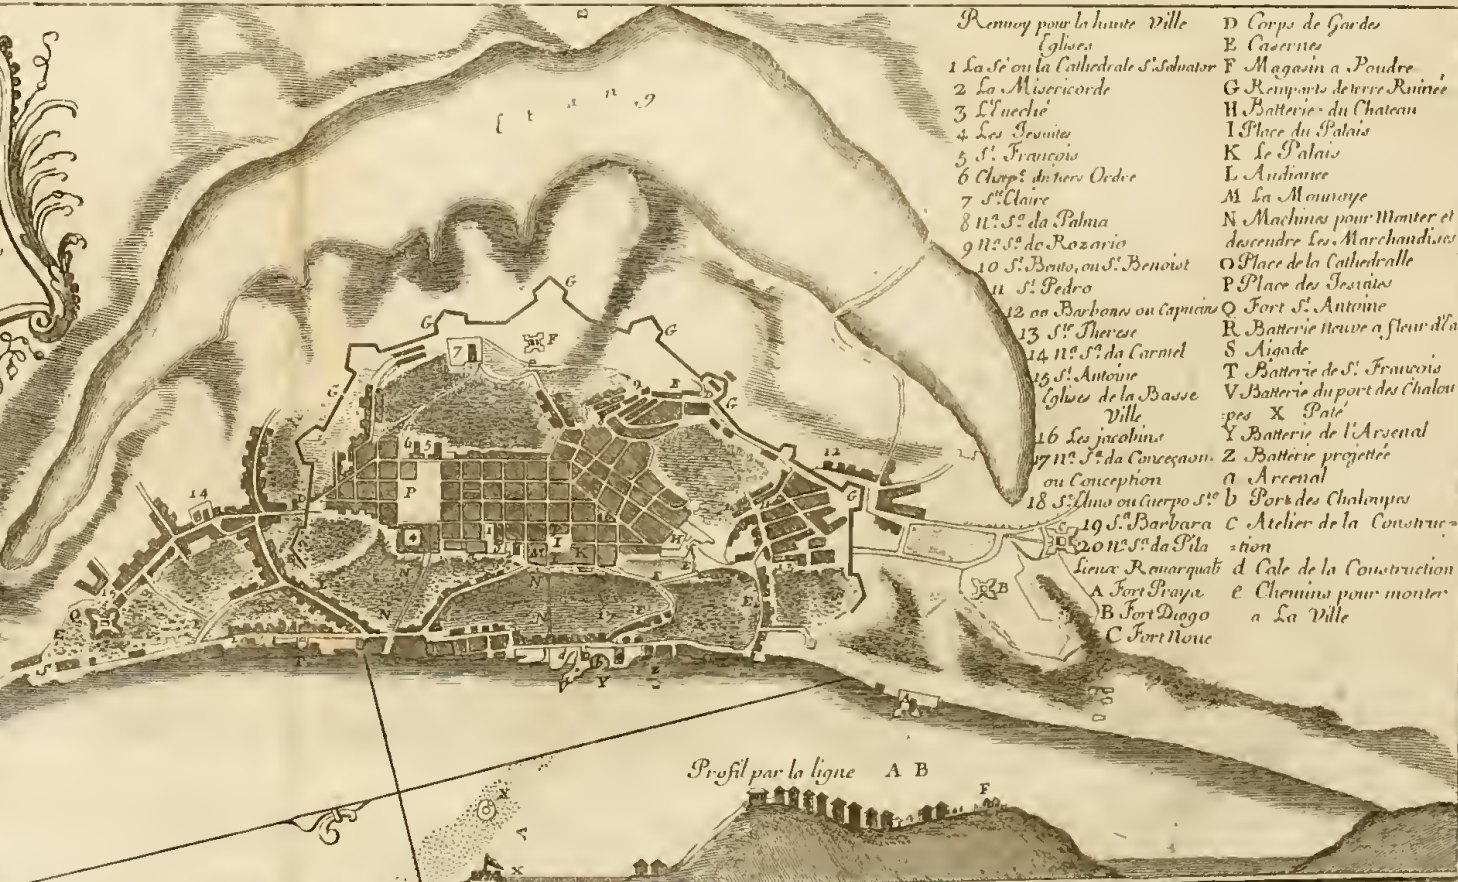 Renvoy pour la haute Ville
Eglises
1 La Sé ou la Cathedrale St. Salvator
2 La Misericorde
3 L'Eveché
4 Les Jesuites
5 St. François
6 Chapt. du tiers Ordre
7 Ste. Claire
8 Na. Sa. da Palma
9 Na. Sa. do Rozario
10 St. Bento, ou St. Benoist
11 St. Pedro
12 os Barbones ou Capucins
13 Ste. Therese
14 Na. Sa. da Carmel
15 St. Antoine
Eglises de la Basse
Ville
16 Les jacobins
17 Na. Sa. da Conceçaon
ou Conception
18 St. Elmo ou Cuerpo Sto
19 Sa. Barbara
20 Na. Sa. da Pila
Lieux Remarquab
A Fort Praya
B Fort Diogo
C Fort Noue
D Corps de Gardes
E Casernes
F Magasin a Poudre
G Remparts de terre Ruinée
H Batterie du Chateau
I Place du Palais
K Le Palais
L Audiance
M La Monnoye
N Machines pour Monter et
descendre Les Marchandises
O Place de la Cathedralle
P Place des Jesuites
Q Fort St. Antoine
R Batterie neuve a fleur d'Ea
S Aigade
T Batterie de St. François
V Batterie du port des Chalou
=pes X Paté
Y Batterie de l'Arsenal
Z Batterie projettée
a Arcenal
b Port des Chaloupes
c Atelier de la Construc=
=tion
d Cale de la Construction
e Chemins pour monter
a La Ville
B
Etang
G
G
G
G
F
7
9
E
D
G
6 5
P
12
G
14
D
4
1
I
M
K
H
C
B
13
N
N
N
17
E
E
Q
E
S
T
d
b
V
Y
Z
A
Profil par la ligne A B
F
X
A
X